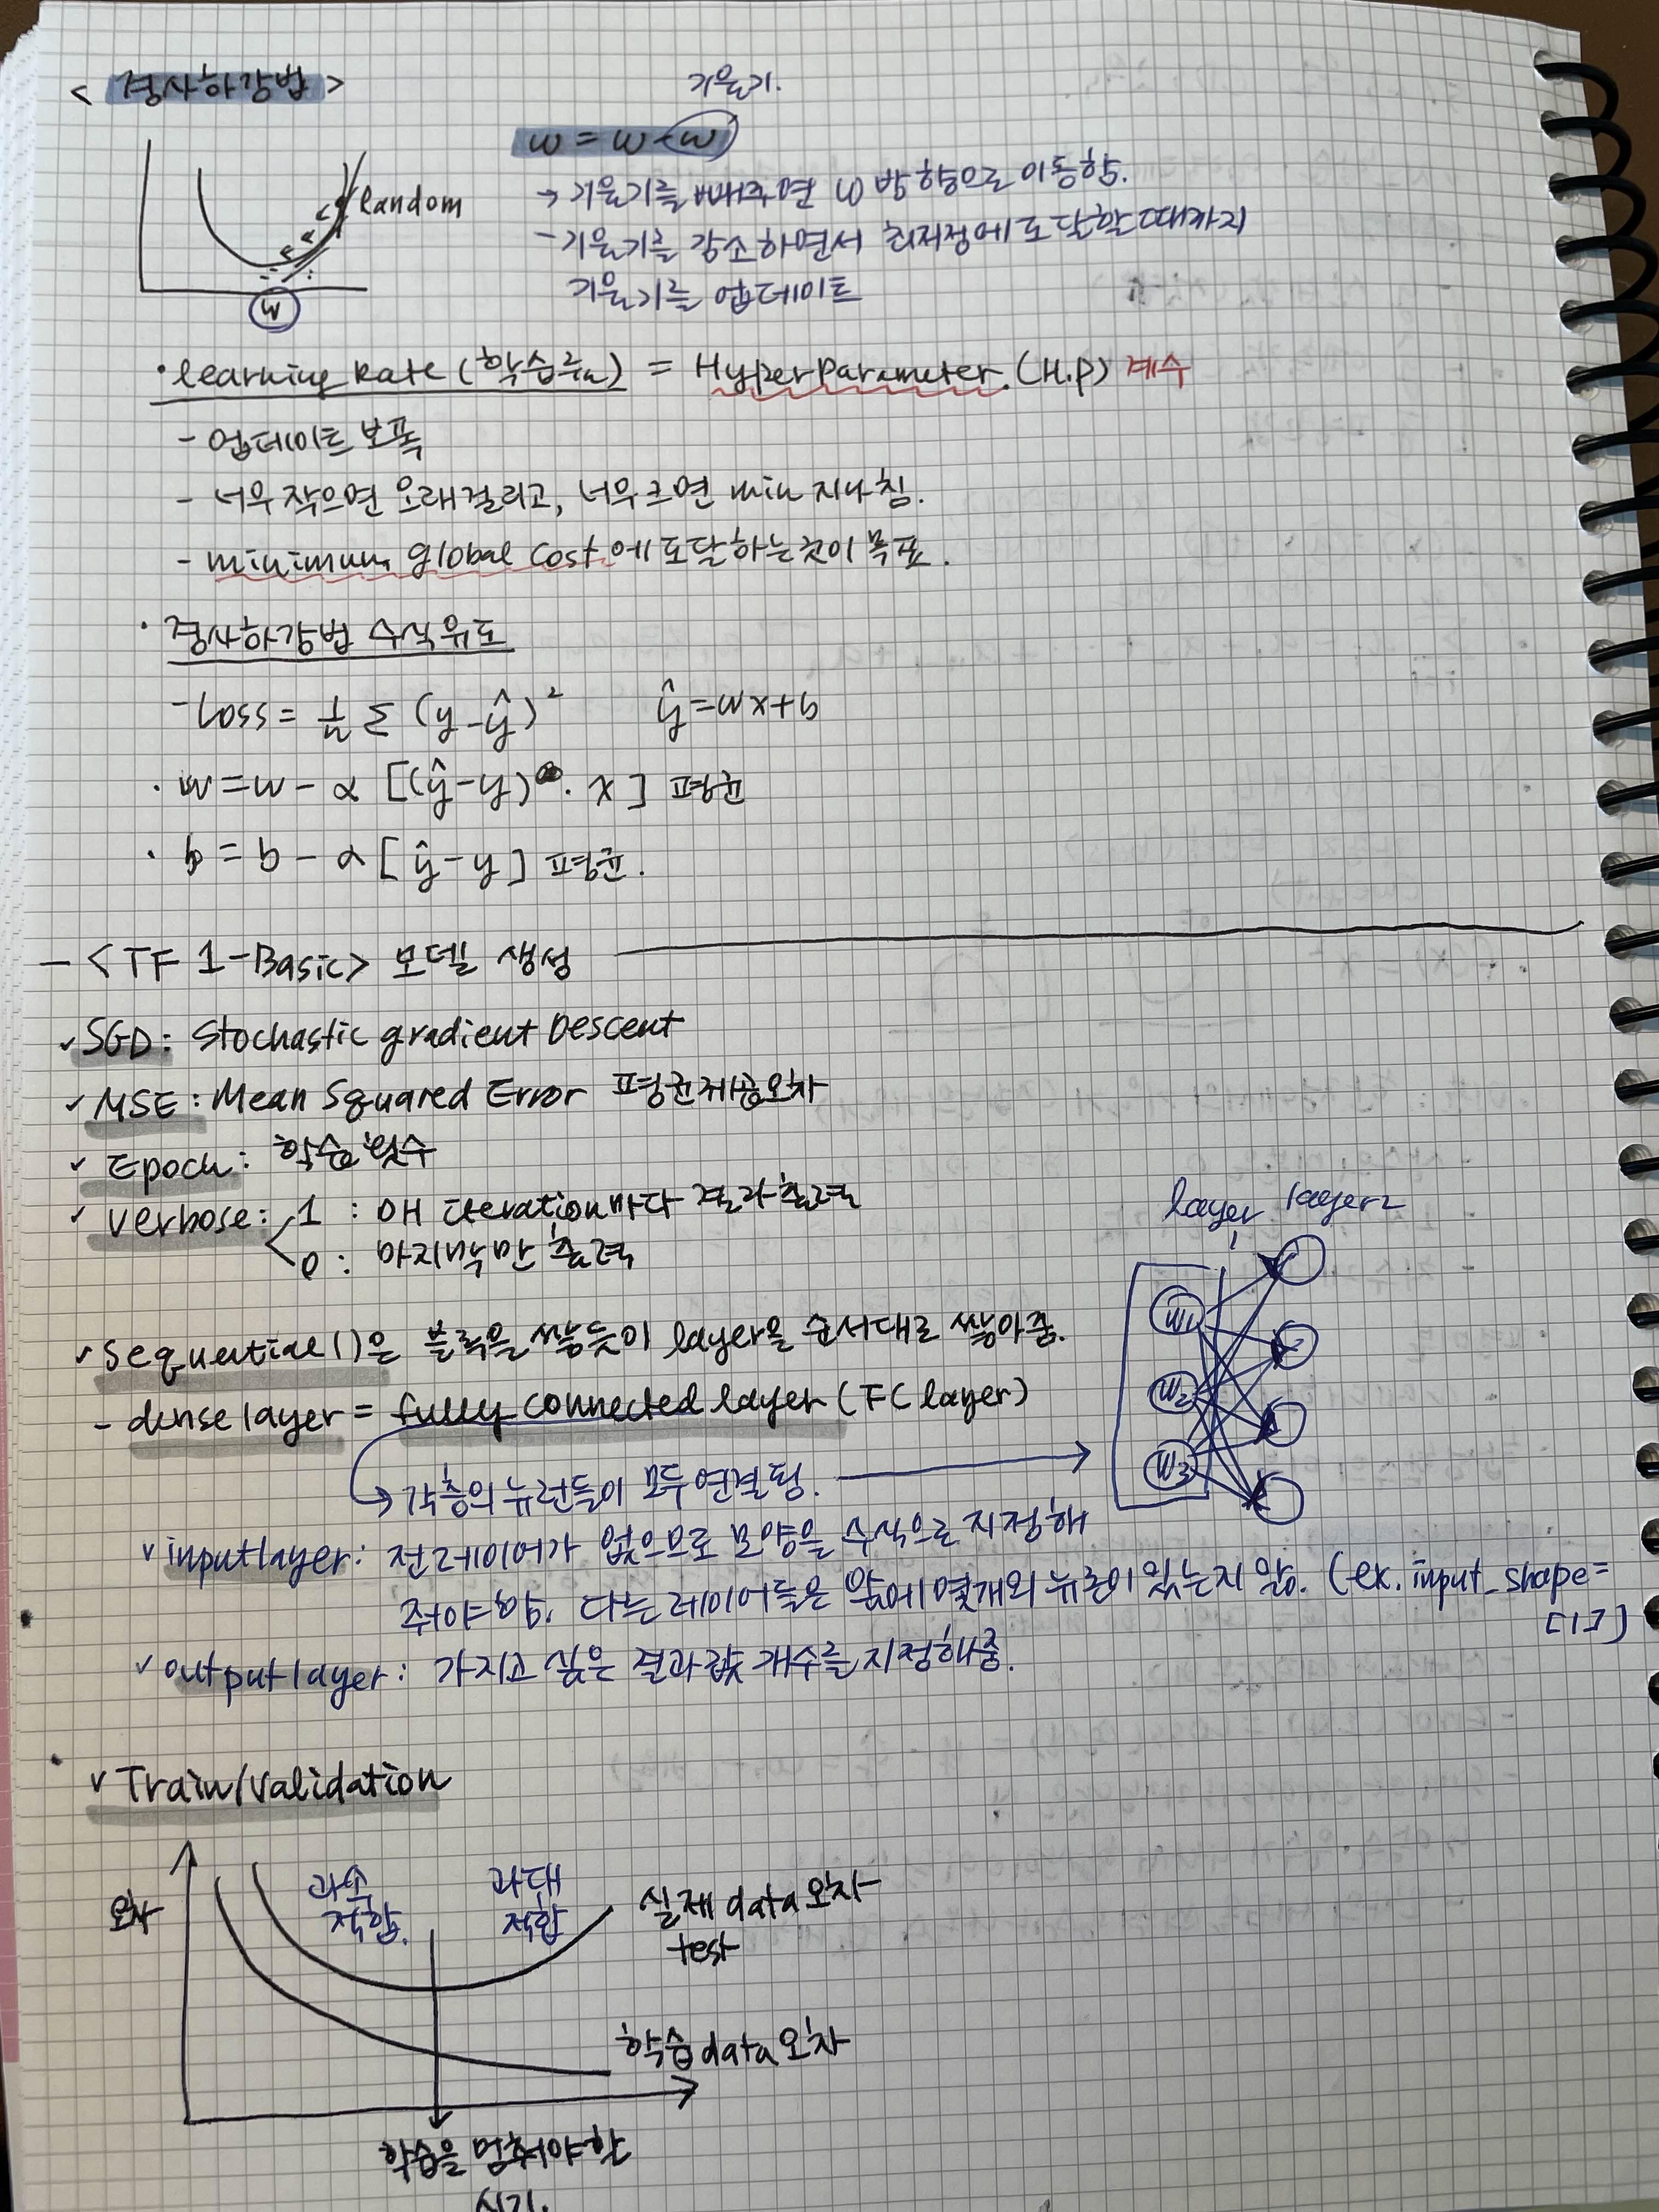 < 경사하강법 >
기울기.
w = w - w
Random
→ 기울기를 빼주면 w 방향으로 이동함.
- 기울기를 감소하면서 최저점에 도달할 때까지
기울기를 업데이트
w
· learning Rate (학습률) = HyperParameter. (H.P) 계수
- 업데이트 보폭
- 너무 작으면 오래걸리고, 너무크면 min 지나침.
- minimum global cost에 도달하는것이 목표.
· 경사하강법 수식유도
- Loss = 1/n Σ (y-ŷ)² ŷ=wx+b
· w = w - α [(ŷ-y) · x] 평균
· b = b - α [ŷ-y] 평균.
- <TF 1-Basic> 모델 생성
✓ SGD: Stochastic gradient Descent
✓ MSE: Mean Squared Error 평균제곱오차
✓ Epoch: 학습 횟수
✓ Verbose: 1 : 매 iteration마다 결과출력
0 : 마지막만 출력
layer1 layer2
w1
w2
w3
✓ Sequential()은 블록을 쌓듯이 layer을 순서대로 쌓아줌.
- dense layer = fully connected layer (FC layer)
→ 각층의 뉴런들이 모두연결됨.
✓ input layer: 전 레이어가 없으므로 모양을 수식으로 지정해
줘야함. 다른 레이어들은 앞에 몇개의 뉴론이 있는지 앎. (ex. input_shape=
[1])
✓ output layer: 가지고 싶은 결과값 개수를 지정해줌.
✓ Train/Validation
오차
과소 적합.
과대 적합
실제 data 오차
test
학습 data 오차
학습을 멈춰야할
시기.